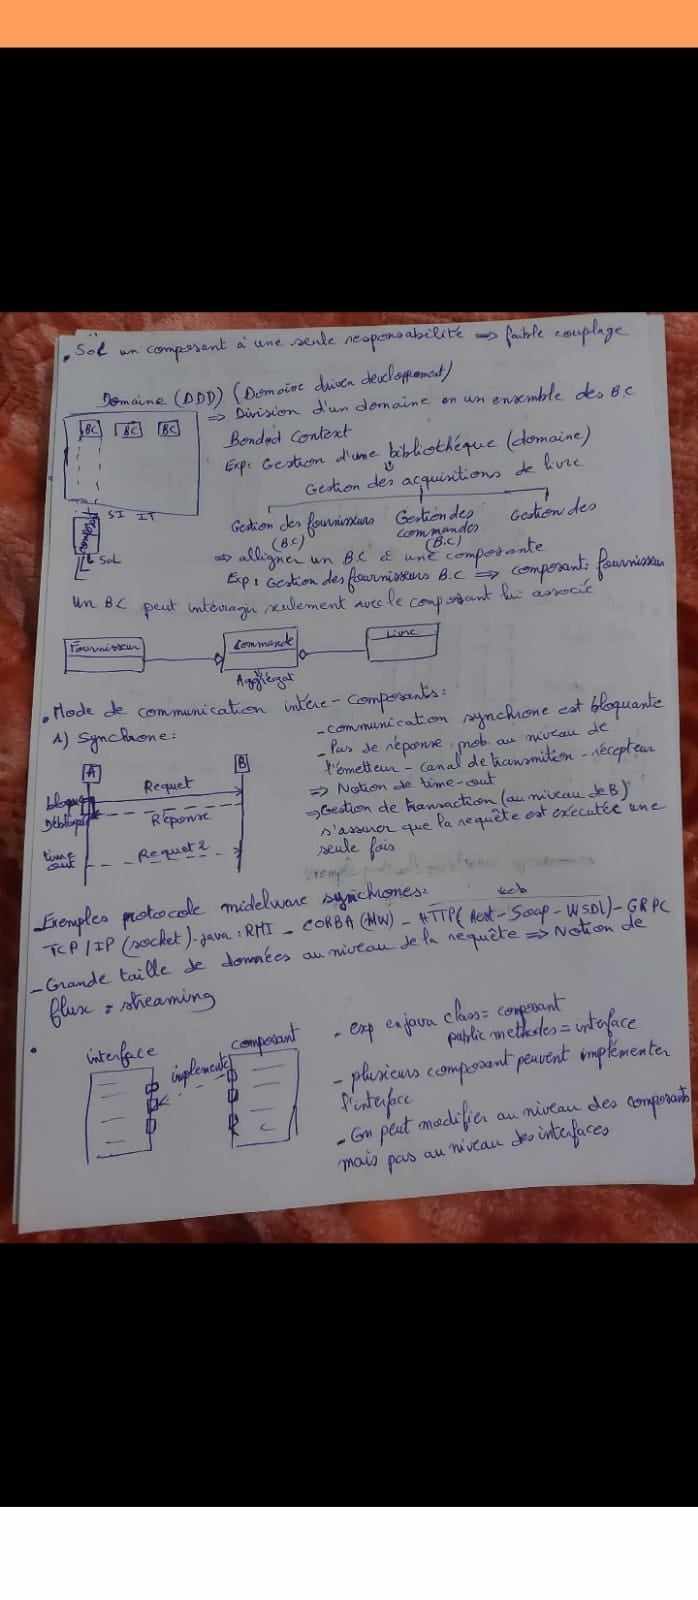 . Sol un composant à une seule responsabilité => faible couplage
Domaine (DDD) (Domaine driven developpement)
=> Division d'un domaine en un ensemble des B.C
BC BC BC
Bonded Context
Exp: Gestion d'une bibliothéque (domaine)
Gestion des acquisitions de livre
SI IT
Gestion des fournisseurs (BC)
Gestion des commandes (B.C)
Gestion des
Sol
=> alligner un BC à une composante
Exp: Gestion des fournisseurs B.C => composant: fournisseur
Un BC peut intéragir seulement avec le composant lui associé
Fournisseur Commande Livre
Aggrégat
. Mode de communication intére-composants:
1) Synchrone:
A B
bloqué
Débloqué
time out
Requet
Réponse
Requet 2
- communication synchrone est bloquante
- Pas de réponse prob au niveau de
l'émetteur - canal de transmition - récepteur
=> Notion de time-out
=> Gestion de transaction (au niveau de B)
s'assurer que la requête est executée une
seule fois
- Exemples protocole midelware synchrones:
web
TCP/IP (socket)-java: RMI - CORBA (MW) - HTTP (Rest-Soap-WSDL) - GRPC
- Grande taille de données au niveau de la requête => Notion de
flux = streaming
.
interface composant
implemente
- exp en java class = composant
public methodes = interface
- plusieurs composant peuvent implémenter
l'interface
- On peut modifier au niveau des composants
mais pas au niveau des interfaces